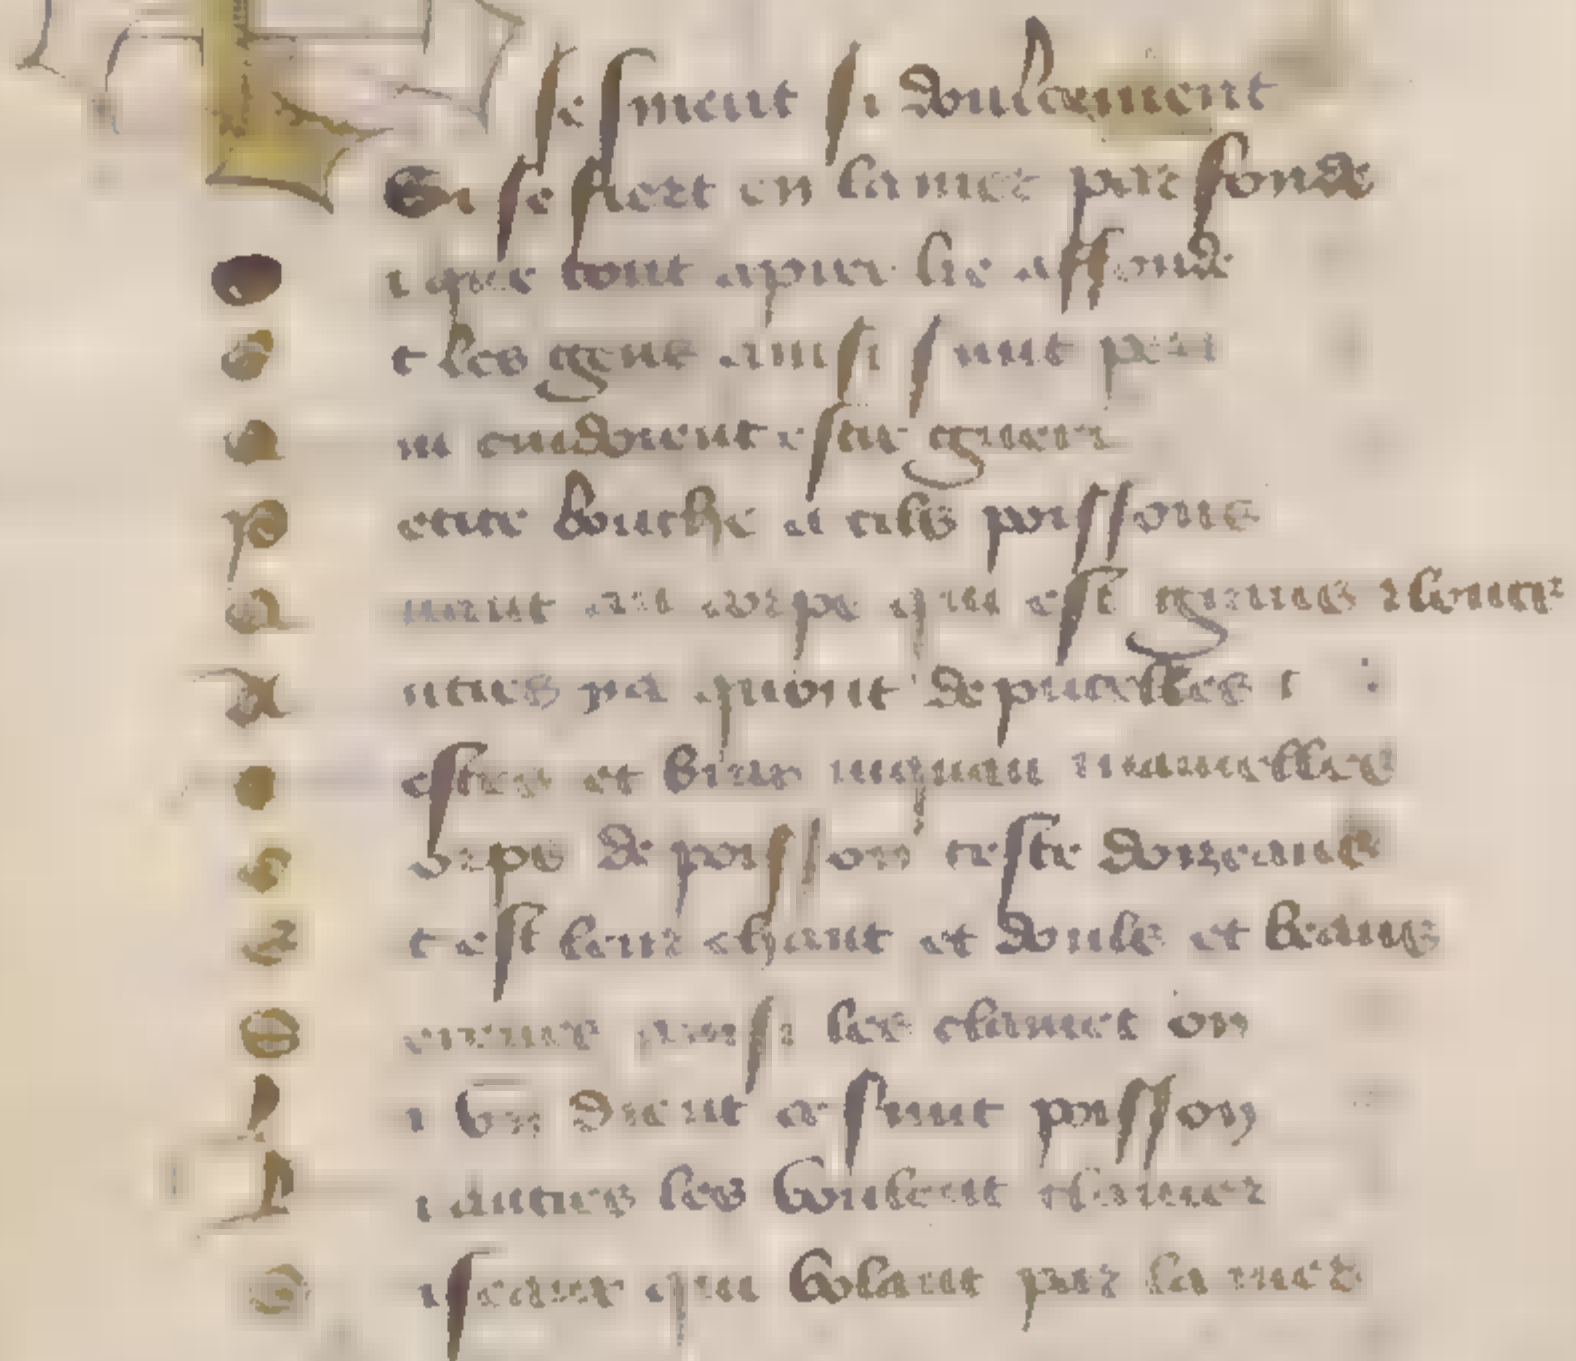 se sment si doulcement
Si se fiert en la mer parfonde
i que tout apres lie affonde
t les gens ainsi sunt peri
ui cuidoient estre gueri
P etite bouche a cilz poissons
A uant au corps qui est grans z lons
A utres ya quont de pucelles
estes et bras iuquau mamelles
C orps de poisson teste doizeaus
E t est leur chant et doulz et beaus
S eraines les claimet on
L i vn dient ce sunt poisson
L i autres les voulent clamer
O iseaux qui volant par la mer